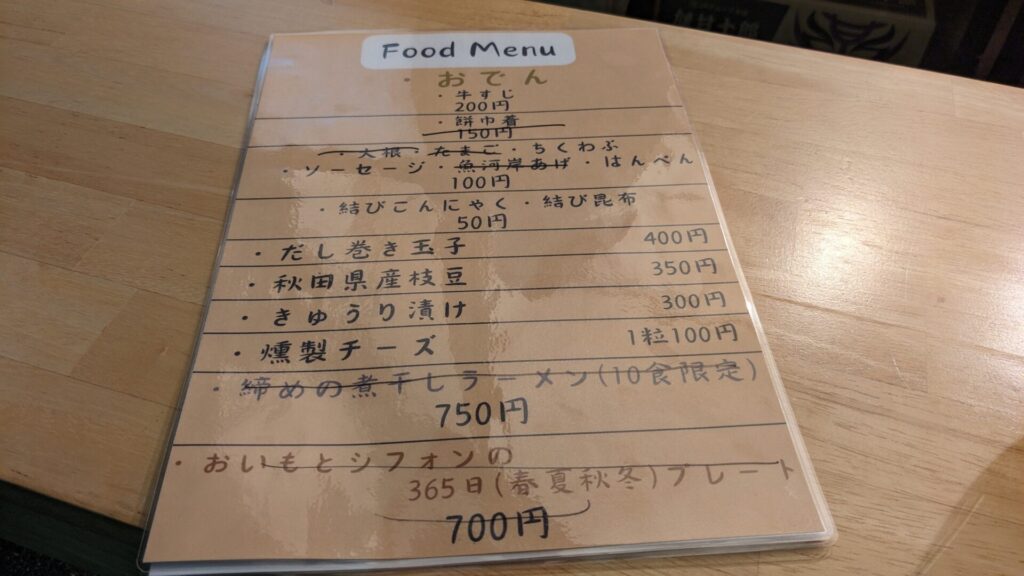 Food Menu
・おでん
・牛すじ
200円
・餅巾着
150円
・大根・たまご・ちくわぶ
・ソーセージ・魚河岸あげ・はんぺん
100円
・結びこんにゃく・結び昆布
50円
・だし巻き玉子 400円
・秋田県産枝豆 350円
・きゅうり漬け 300円
・燻製チーズ 1粒100円
・締めの煮干しラーメン(10食限定)
750円
・おいもとシフォンの
365日(春夏秋冬)プレート
700円